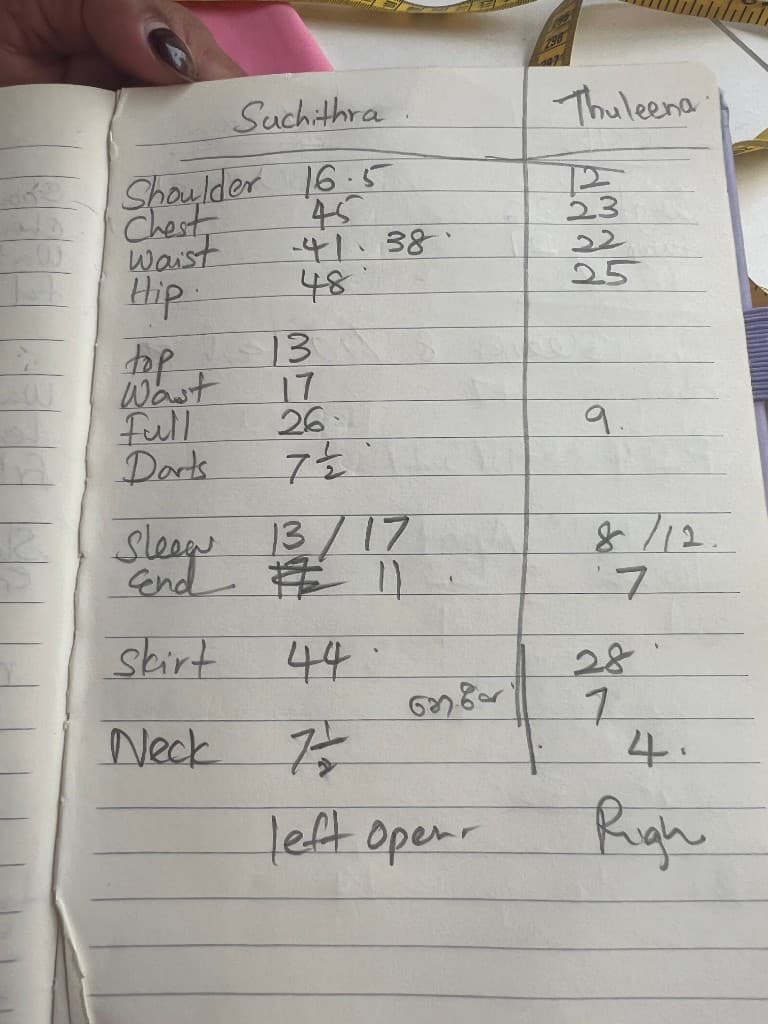 Suchithra. Thuleena
Shoulder 16.5 12
Chest 45 23
Waist -41. 38. 22
Hip. 48 25
top 13
Waist 17
Full 26. 9.
Darts 7 ½
Sleeve 13 / 17 8 / 12.
End 11. 7
Skirt 44. 28
7
Neck 7 ½ 4.
left open Righ